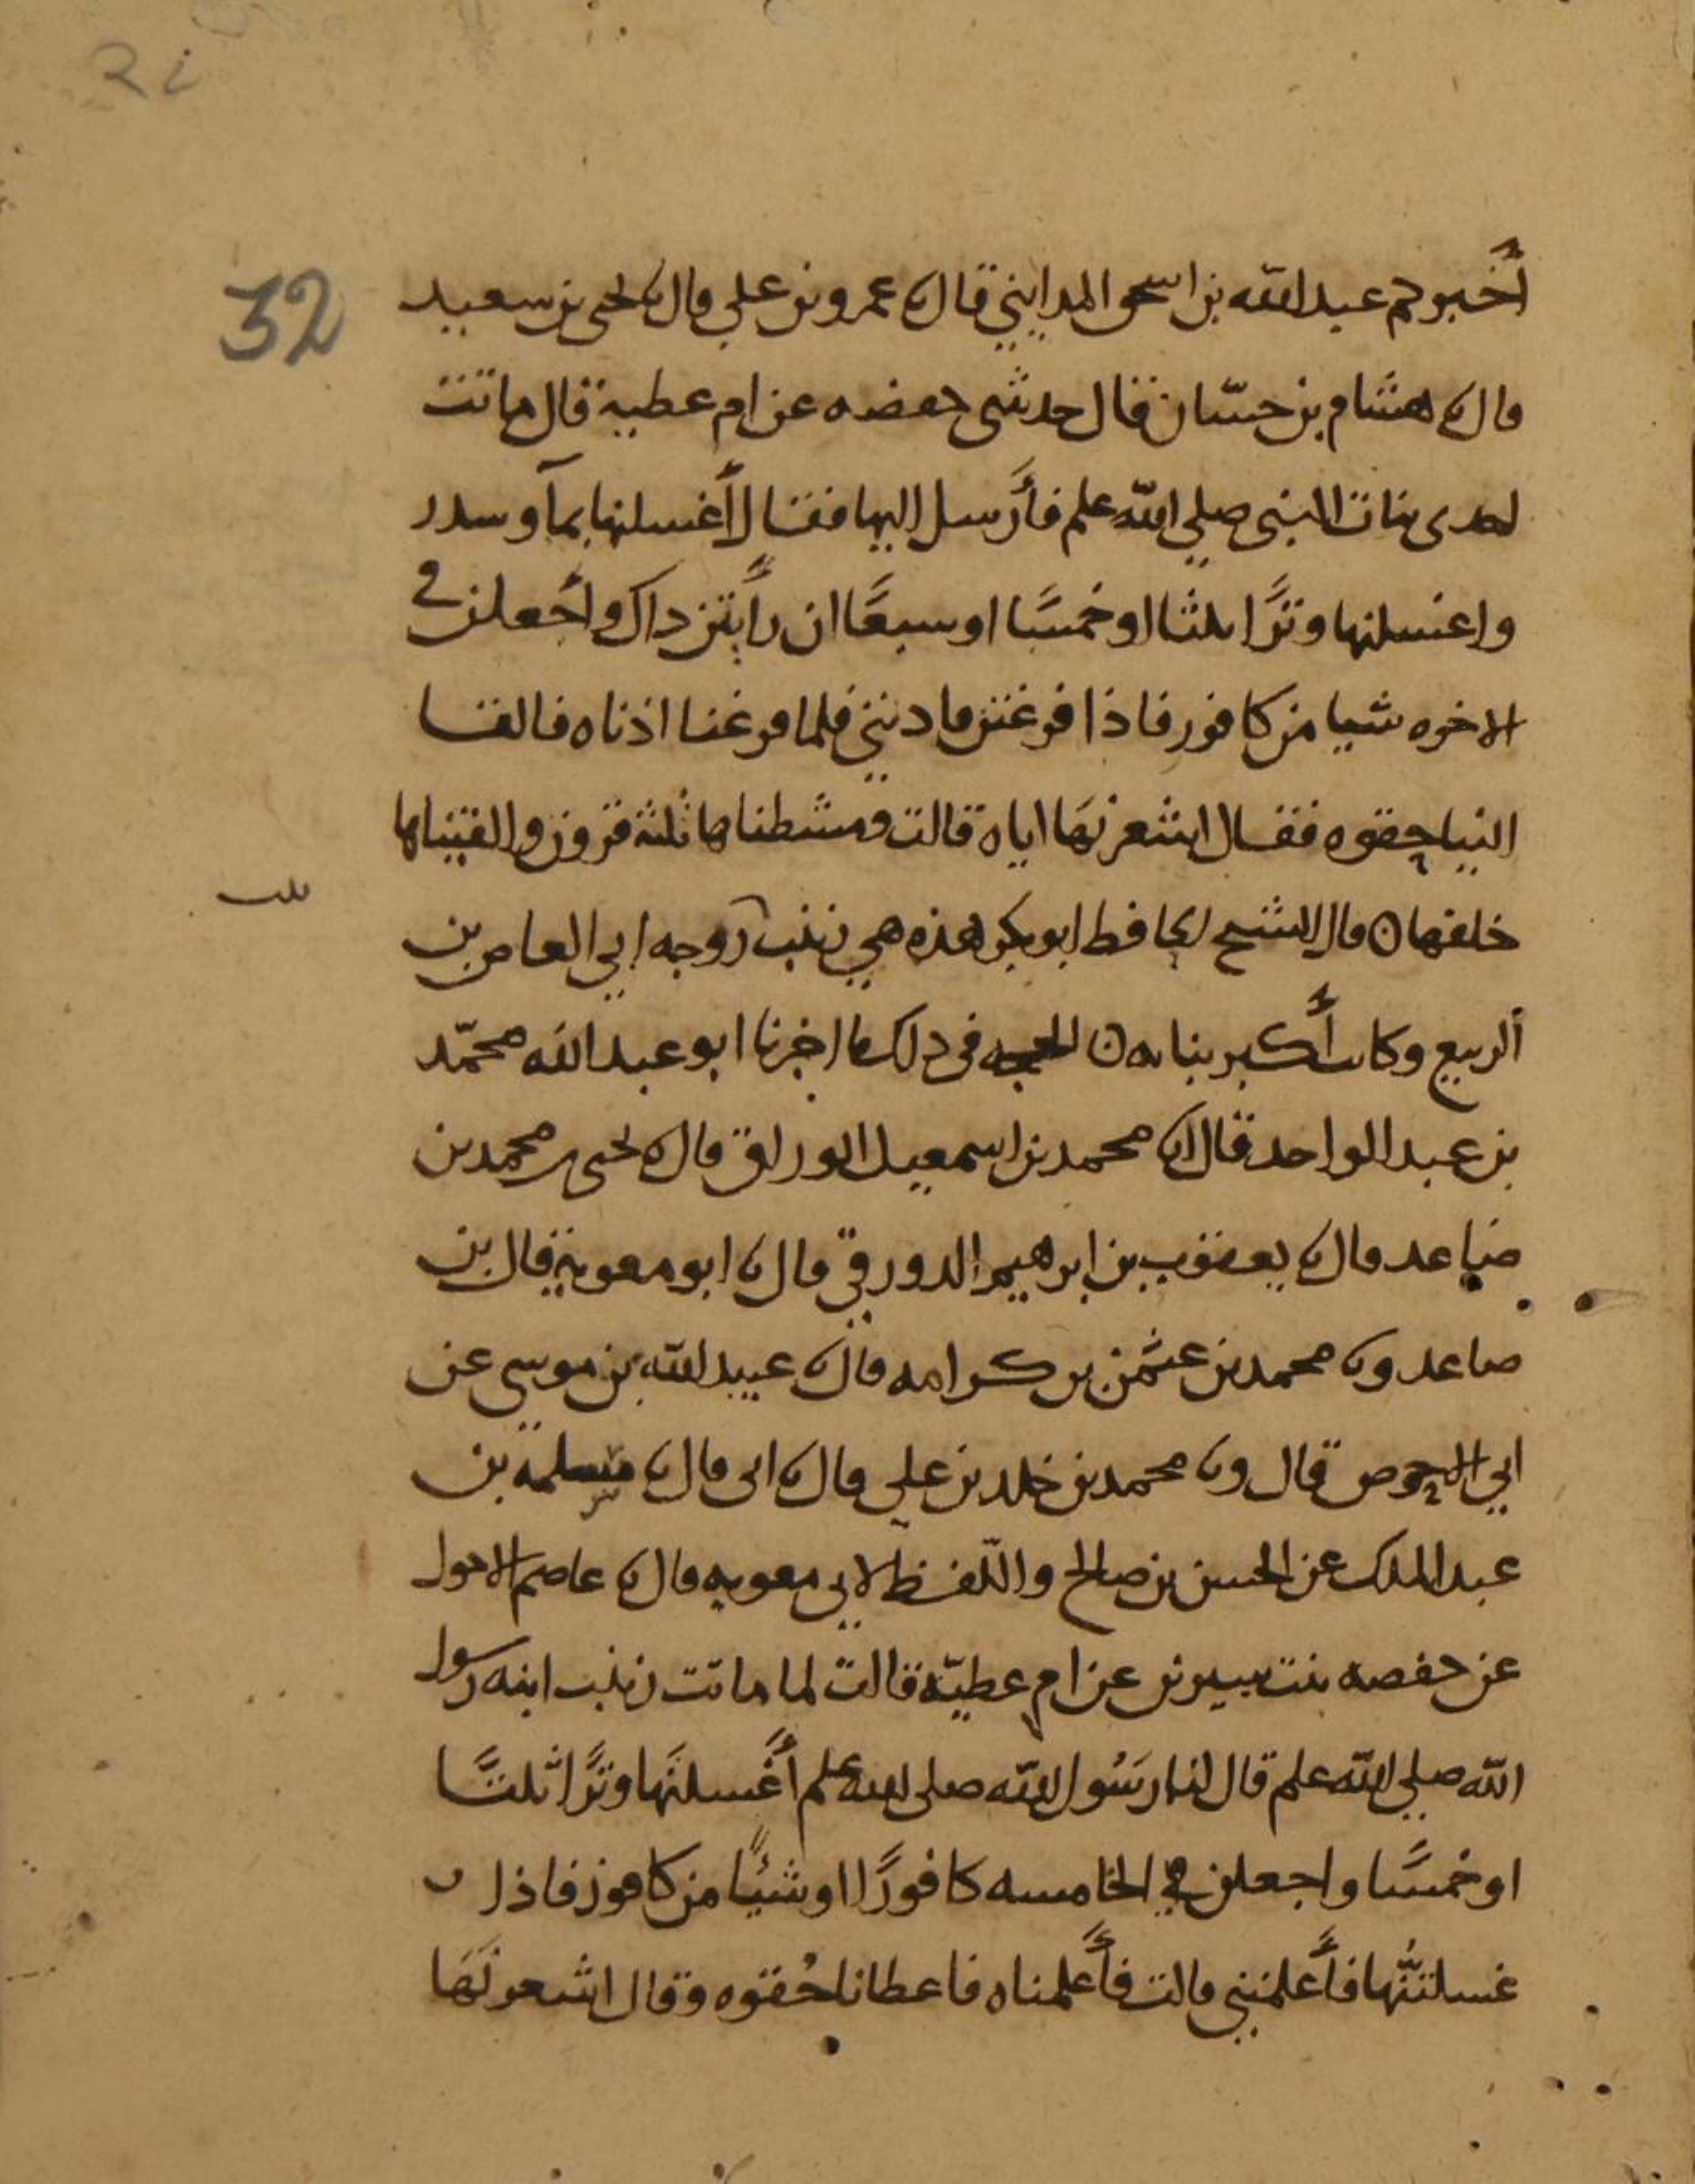 32
أخبركم عبد الله بن اسحق المدايني قال نا عمرو بن علي قال نا يحيى بن سعيد
قال نا هشام بن حسّان قال حدثني حفصه عن ام عطية قال ماتت
احدى بنات النبي صلي الله علم فأرسل اليها فقال أغسلنها بمآ وسدر
واغسلنها وترًا ثلثا او خمسًا او سبعًا ان رأيتن ذاك وأجعلن في
الاخره شيا من كافور فاذا فرغتن فاذنني فلما فرغنا اذناه فالقا
الينا حقوه فقال اشعرنها اياه قالت ومشطناها ثلثة قرون والقيناها
خلفها ن قال الشيخ الحافظ ابو بكر هذه هي زينب زوجه ابي العاص بن
ألربيع وكانت أكبر بناته ن الحجه في ذلك ما اخبرنا ابو عبد الله محمّد
بن عبد الواحد قال انا محمد بن اسمعيل الوراق قال نا يحيى بن محمد بن
صاعد قال نا يعقوب بن ابرهيم الدورقي قال نا ابو معوية قال بن
صاعد ونا محمد بن عثمن بن كرامه قال نا عبيد الله بن موسى عن
ابي الاحوص قال ونا محمد بن خلد بن علي قال نا ابي قال نا سلمة بن
عبد الملك عن الحسن بن صالح واللّفظ لابي معويه قال نا عاصم الاحول
عن حفصه بنت سيرين عن ام عطيّة قالت لما ماتت زينب ابنه رسول
الله صلي الله علم قال لنا رسُول الله صلى الله علم أغسلنَها وترًا ثلثًا
او خمسًا واجعلن في الخامسه كافورًا او شئيًا من كافور فاذا
غسلتنُّها فأعلمنني قالت فأعلمناه فاعطانا حُقوه وقال اشعرنَهَا